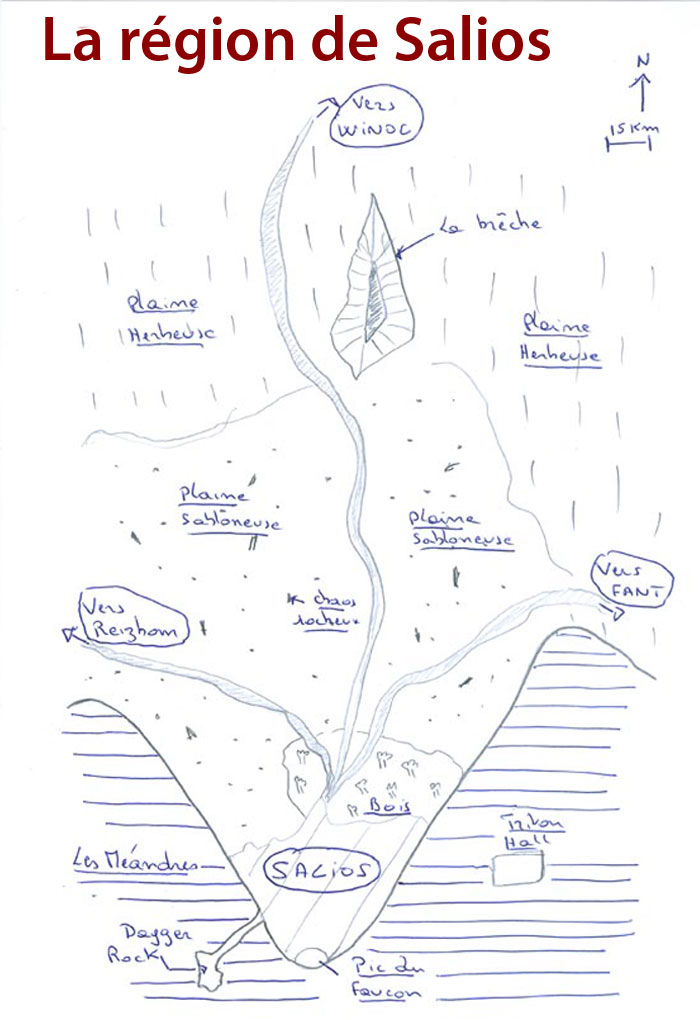 La région de Salios
N
15 Km
Vers
WINDC
La brêche
Plaine
Herbeuse
Plaine
Herbeuse
Plaine
Sabloneuse
Plaine
Sabloneuse
Vers
FANT
chaos
rocheux
Vers
Reizhom
Bois
Triton
Hall
Les Méandres
SALIOS
Dagger
Rock
Pic du
Faucon